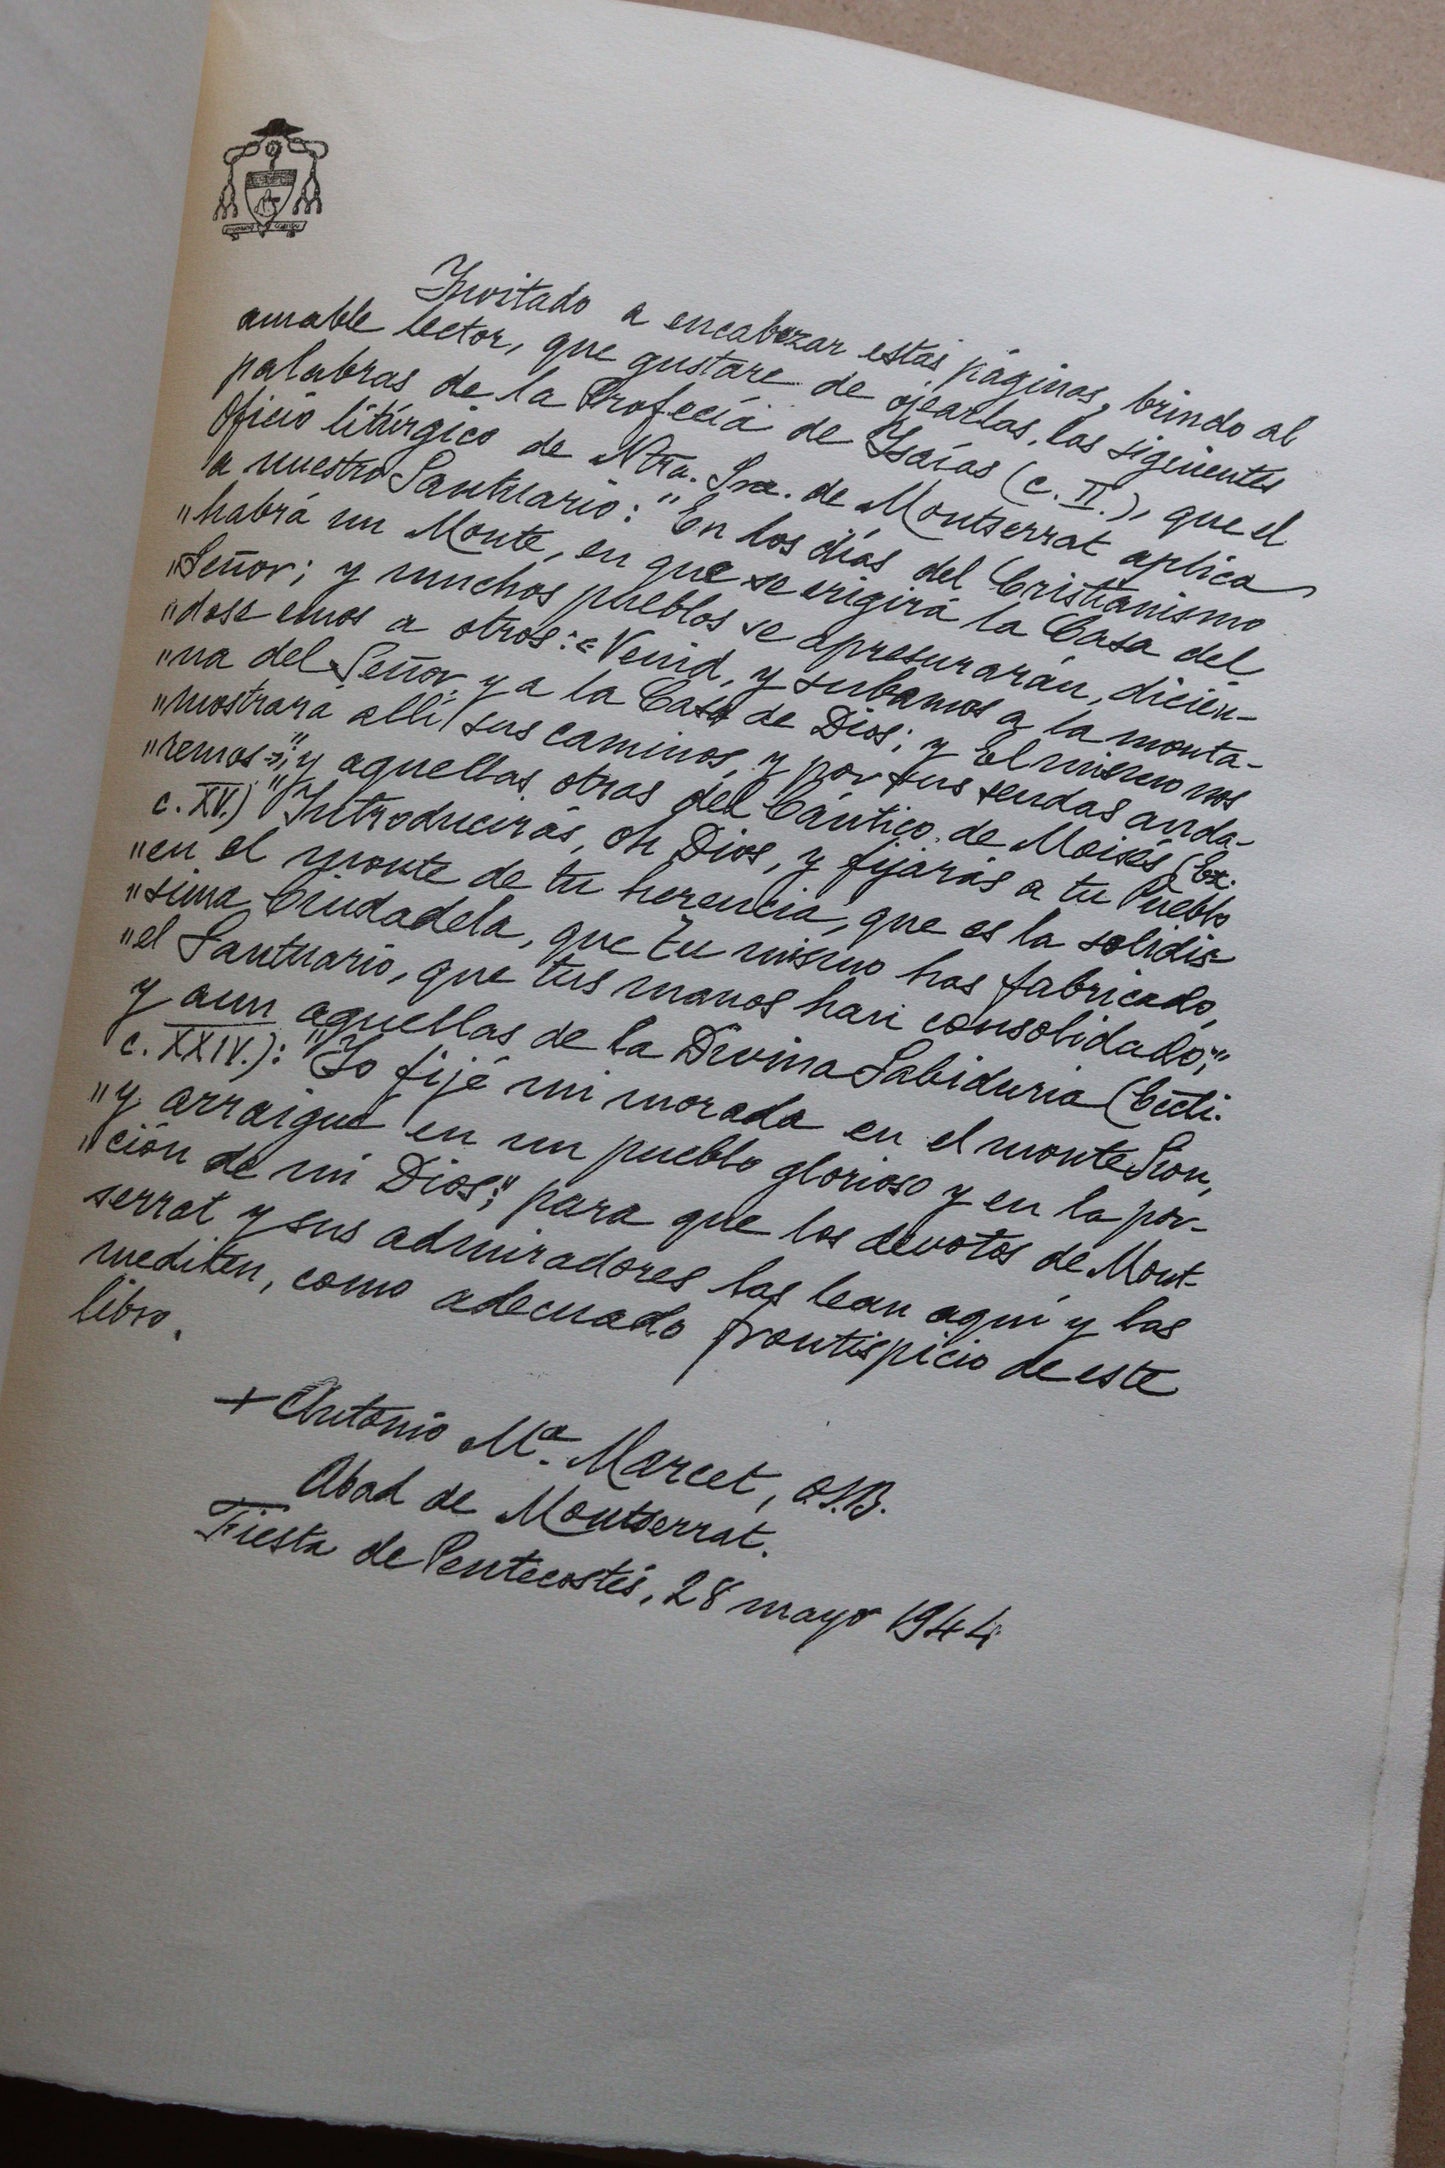 Invitado a encabezar estas páginas, brindo al
amable lector, que gustare de ojearlas, las sigenientes
palabras de la Profecía de Isaías (c. II.), que el
Oficio litúrgico de Ntra. Sra. de Montserrat aplica
a nuestro Santuario: "En los días del Cristianismo
"habrá un Monte, en que se erigirá la Casa del
"Señor; y muchos pueblos se apresurarán, dicién-
"dose unos a otros: «Venid, y subamos a la monta-
"na del Señor y a la Casa de Dios; y El mismo nos
"mostrará allí sus caminos, y por sus sendas anda-
"remos»;" y aquellas otras del Cántico de Moisés (Ex.
c. XV.) "Introducirás, oh Dios, y fijarás a tu Pueblo
"en el monte de tu herencia, que es la solidís-
"sima Ciudadela, que Tu mismo has fabricado,
"el Santuario, que tus manos han consolidado;"
y aun aquellas de la Divina Sabiduria (Eccli.
c. XXIV.): "Yo fijé mi morada en el monte Sion,
"y arraigué en un pueblo glorioso y en la por-
"ción de mi Dios;" para que los devotos de Mont-
serrat y sus admiradores las lean aquí y las
mediten, como adecuado frontispicio de este
libro.
+ Antonio Mª. Marcet, O.S.B.
Abad de Montserrat.
Fiesta de Pentecostés, 28 mayo 1944